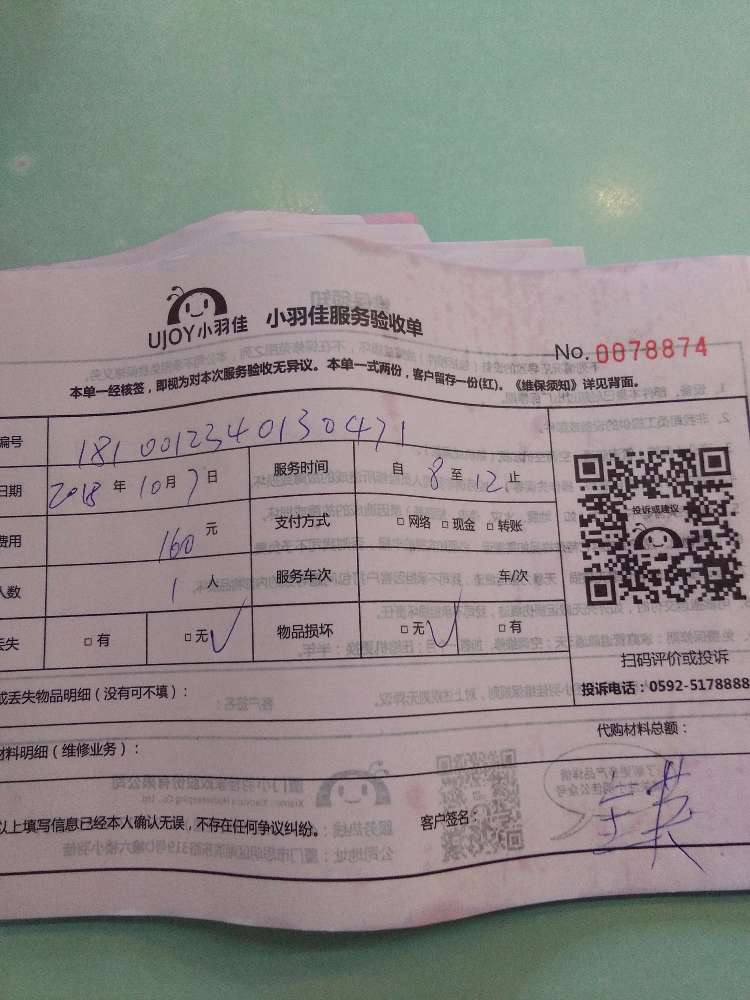 UJOY小羽佳 小羽佳服务验收单
No. 0078874
本单一经核签，即视为对本次服务验收无异议。本单一式两份，客户留存一份(红)。《维保须知》详见背面。
编号 181001234013047 1
日期 2018 年 10 月 7 日 服务时间 自 8 至 12 止
费用 160 元 支付方式 □ 网络 □ 现金 □ 转账
人数 1 人 服务车次 车/次
丢失 □ 有 □ 无 √ 物品损坏 □ 无 √ □ 有
投诉或建议
扫码评价或投诉
投诉电话：0592-5178888
或丢失物品明细（没有可不填）：
代购材料总额：
材料明细（维修业务）：
以上填写信息已经本人确认无误，不存在任何争议纠纷。 客户签名：